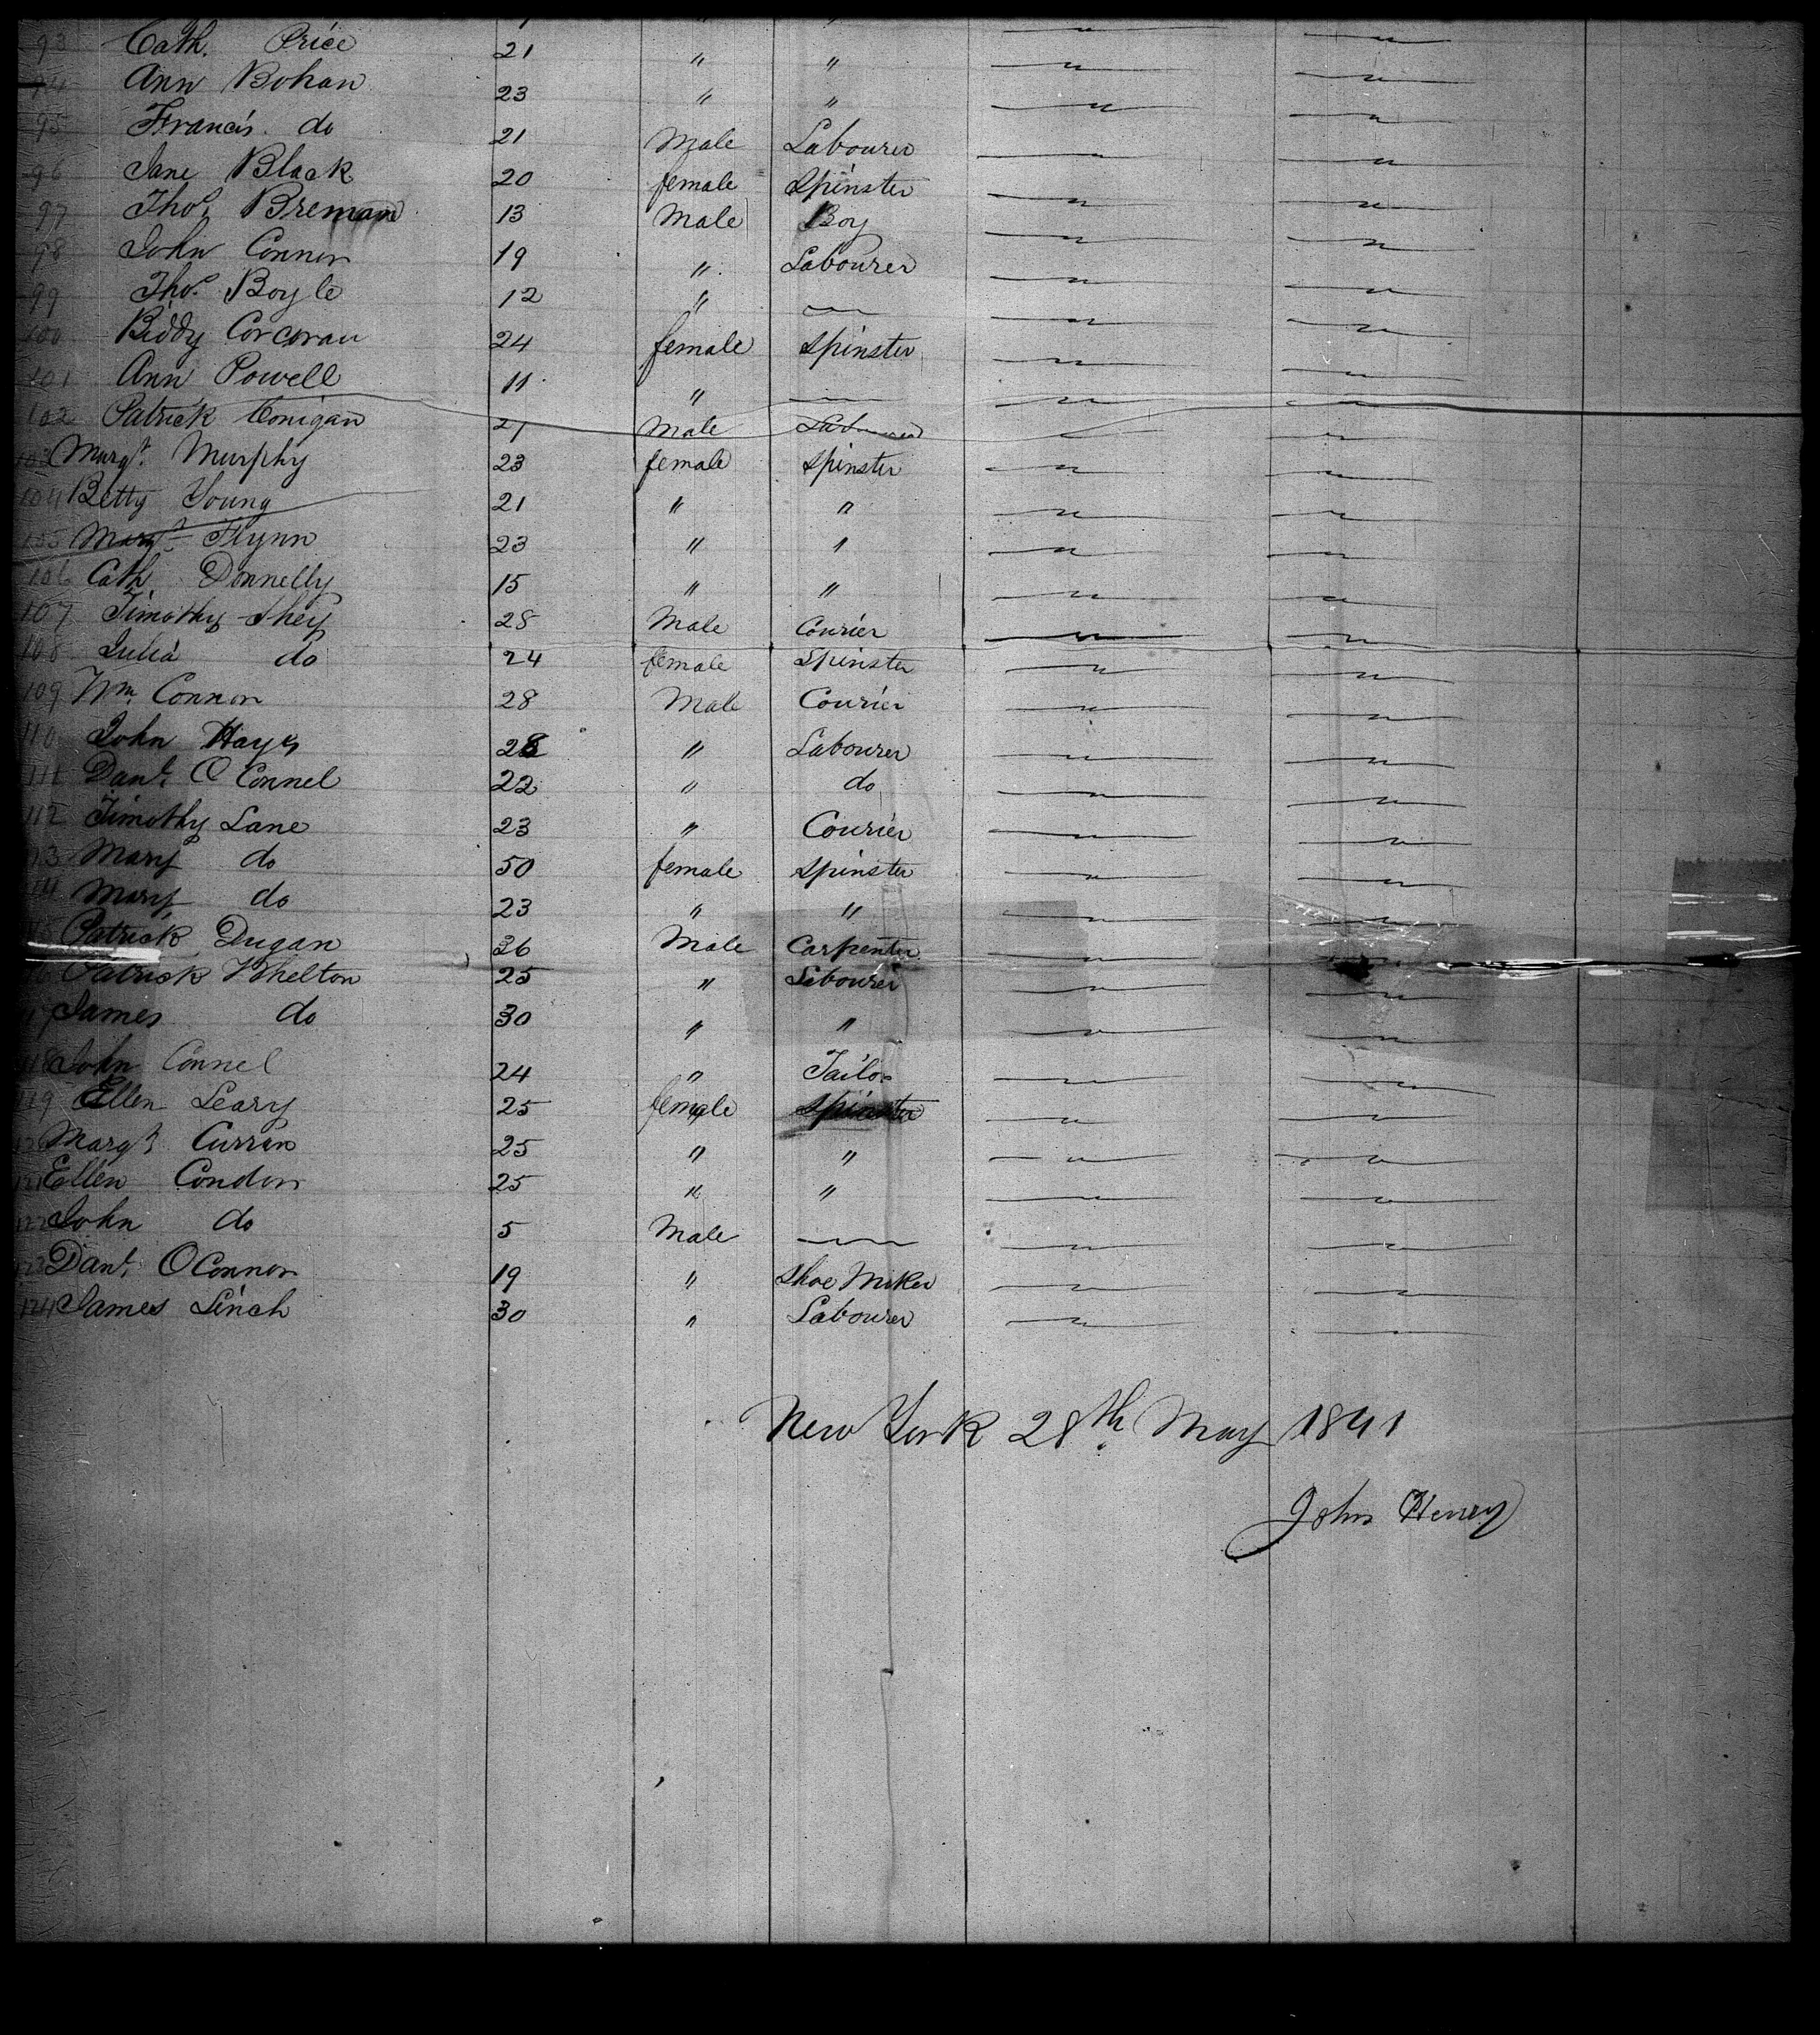 93 Cath. Price 21 " "
94 Ann Bohan 23 " "
95 Francis do 21 Male Labourer
96 Jane Black 20 female Spinster
97 Thos. 13 Male Boy
98 John Connor 19 " Labourer
99 Thos. Boyle 12 "
100 Biddy Corcoran 24 female Spinster
101 Ann Powell 11 "
102 Patrick Conigan 21 Male Labourer
103 Margt. Murphy 23 female Spinster
104 Betty Young 21 " "
105 Margt. Flynn 23 " "
106 Cath Donnelly 15 " "
107 Timothy Shey 28 Male Courier
108 Julia do 24 female Spinster
109 Wm. Connor 28 Male Courier
110 John Hays 28 " Labourer
111 Danl. O Connel 22 " do
112 Timothy Lane 23 " Courier
113 Mary do 50 female Spinster
114 Mary do 23 " "
115 Patrick Dugan 36 Male Carpenter
116 Patrick Whelton 25 " Labourer
117 James do 30 " "
118 John Connel 24 " Tailor
119 Ellen Leary 25 female Spinster
120 Margt. Curran 25 " "
121 Ellen Condon 25 " "
122 John do 5 Male
123 Danl. OConnor 19 " Shoe Maker
124 James Linch 30 " Labourer
New York 28th May 1841
John Henry